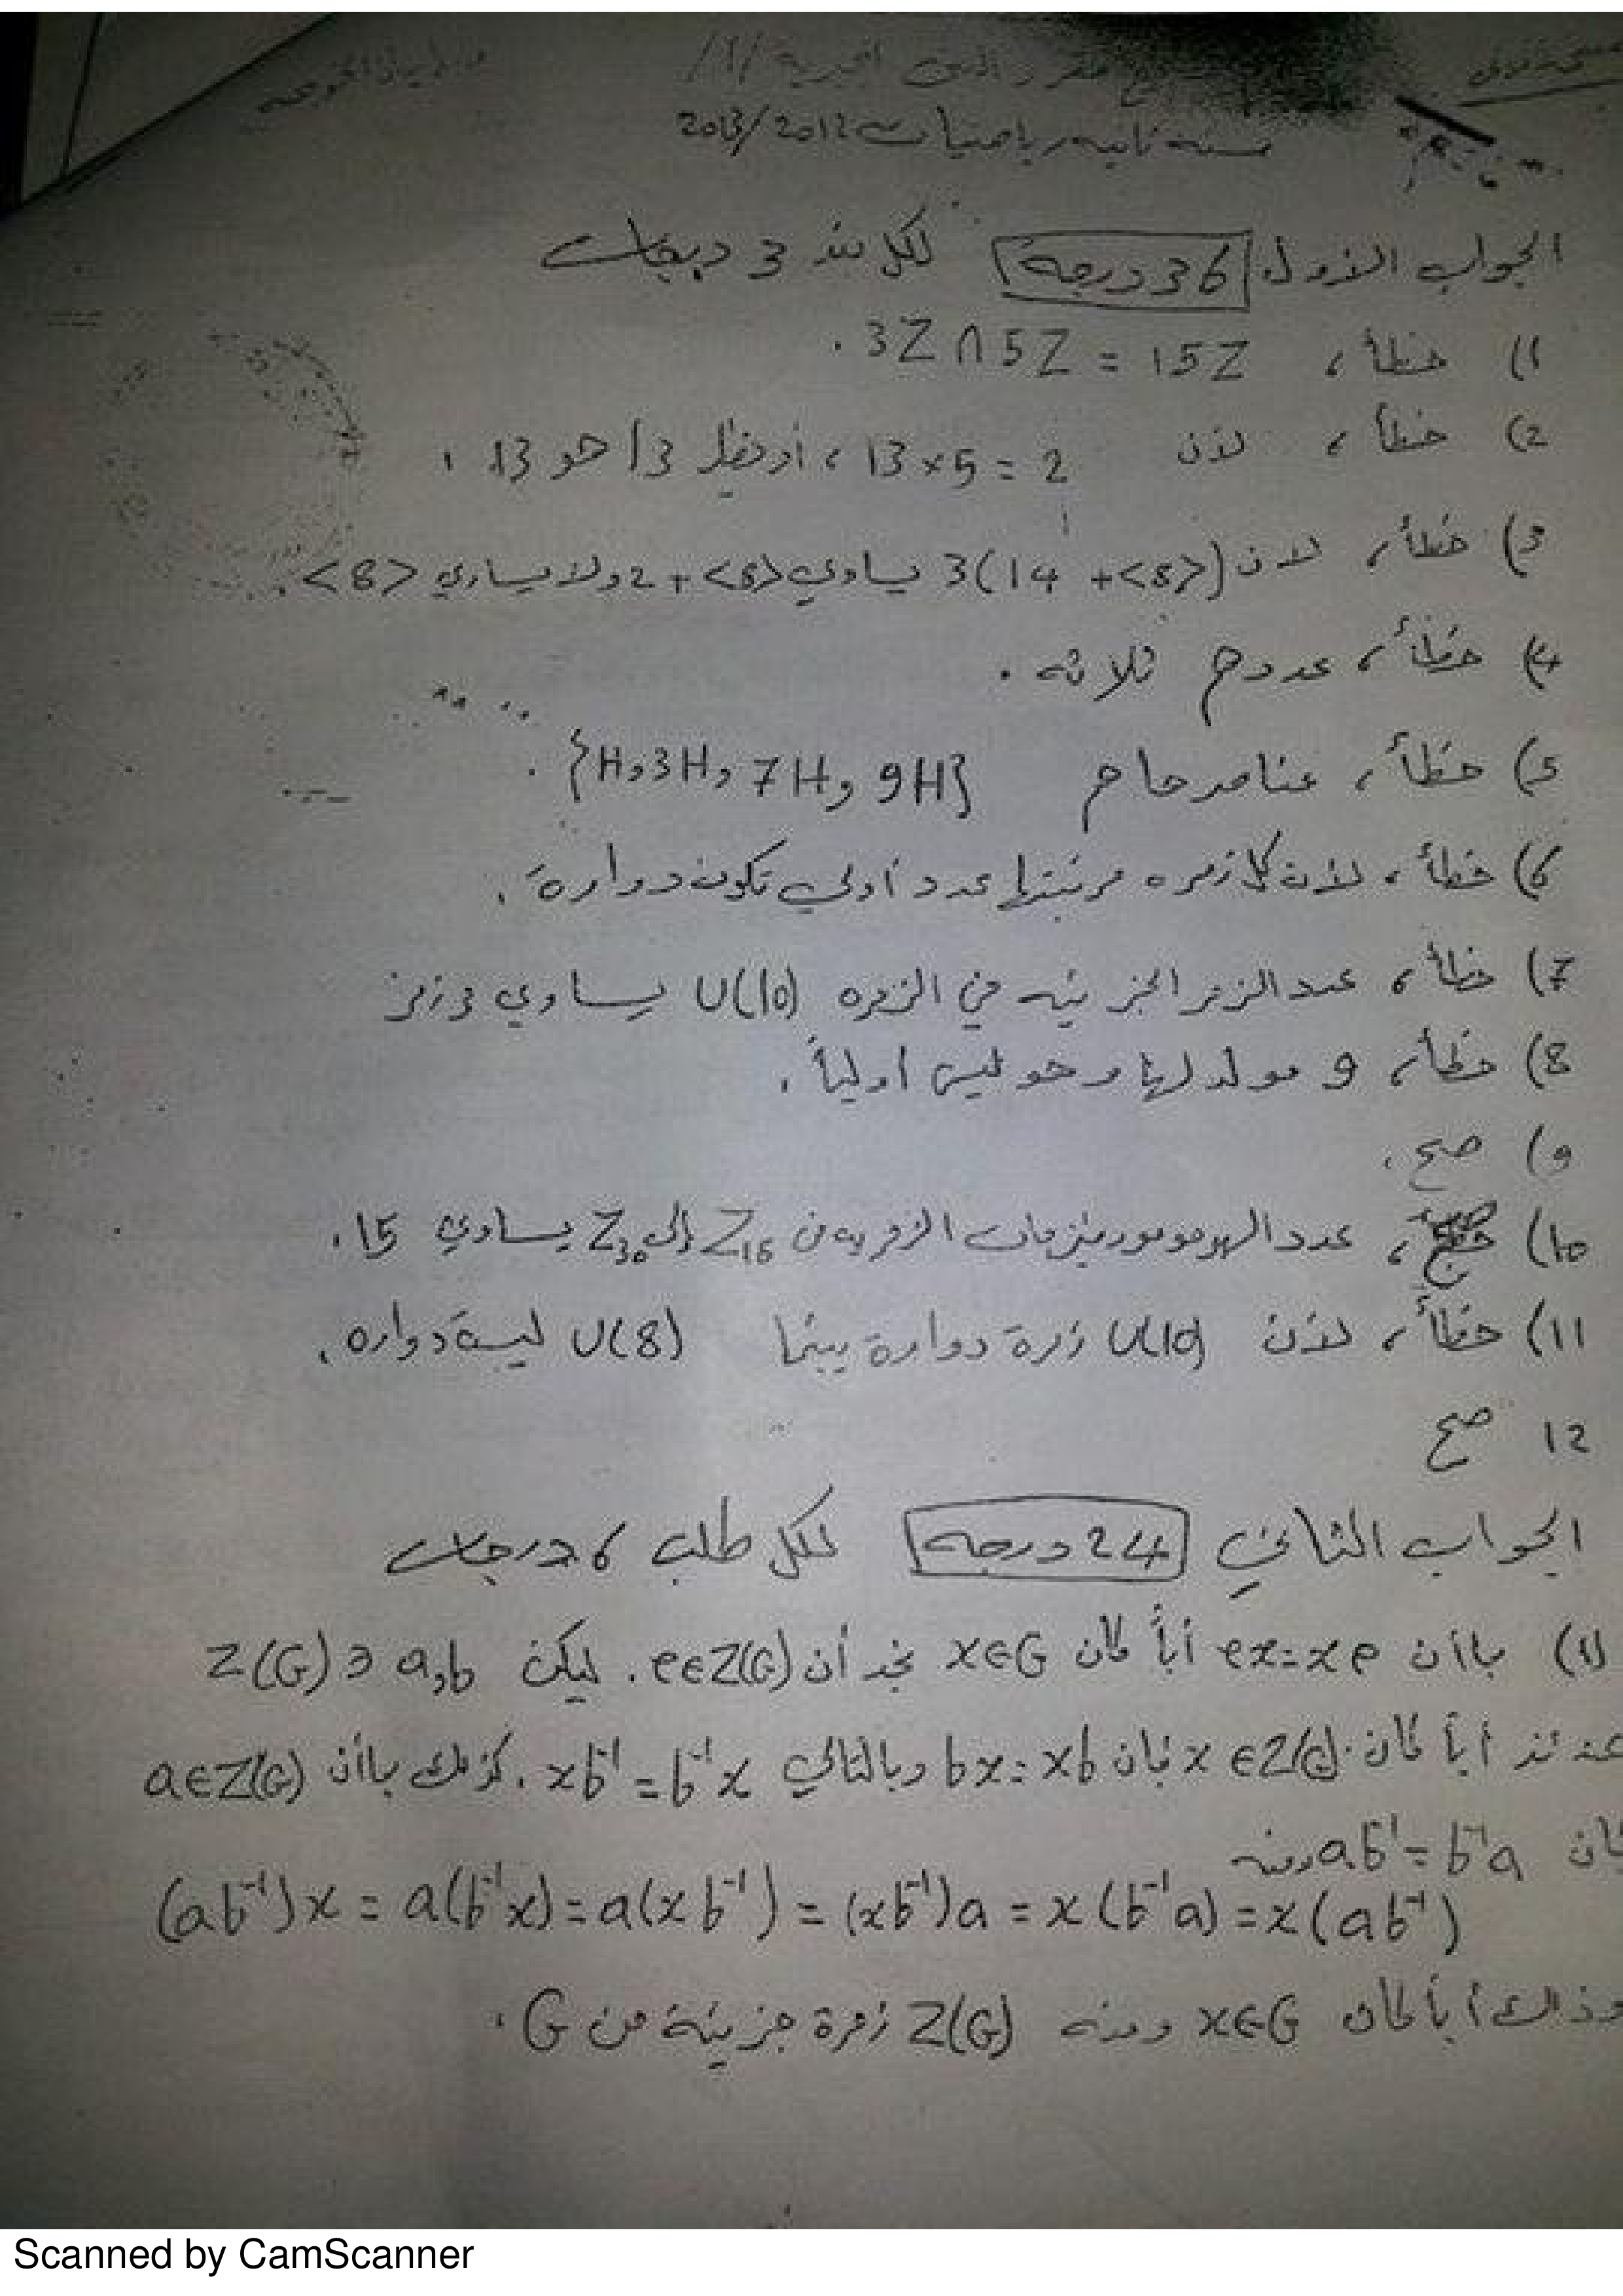 مقرر البنى الجبرية /1/
سنه ثانيه رياضيات 2013/2012
الجواب الأول 36 درجة لكل بند 3 درجات
(1 خطأ، 3Z ∩ 5Z = 15Z .
(2 خطأ، لأن 13×5 = 2 ، أو نظير 13 هو 13 .
(3 خطأ، لان 3(14 +<8>) يساوي 2+<8> ولا يساوي <8> .
(4 خطأ، عددهم ثلاثه .
(5 خطأ، عناصرها هم {H, 3H, 7H, 9H} .
(6 خطأ، لأن كل زمره مرتبتها عدد أولي تكون دوارة .
(7 خطأ، عدد الزمر الجزئيه في الزمره U(10) يساوي 3 زمر
(8 خطأ، 9 مولد لها وهو ليس اولياً .
(9 صح .
(10 صح، عدد الهومومورفيزمات الزمريه من Z15 إلى Z30 يساوي 15 .
(11 خطأ، لأن U(10) زمرة دوارة بينما U(8) ليست دواره .
12 صح
الجواب الثاني 24 درجه لكل طلب 6 درجات
(1) بما أن ex=xe أياً كان x∈G نجد أن e∈Z(G) . ليكن a,b ∈ Z(G)
عندئذ أياً كان x∈Z(G) فإن bx=xb وبالتالي xb⁻¹=b⁻¹x . كذلك بما أن a∈Z(G)
فان ab⁻¹=b⁻¹a ومنه
(ab⁻¹)x = a(b⁻¹x) = a(xb⁻¹) = (xb⁻¹)a = x(b⁻¹a) = x(ab⁻¹)
وذلك أياً كان x∈G ومنه Z(G) زمرة جزئية من G .
Scanned by CamScanner